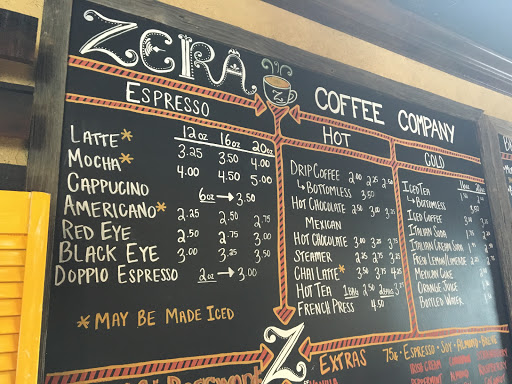 ZEIRA COFFEE COMPANY
ESPRESSO
12oz 16oz 20oz
LATTE* 3.25 3.50 4.00
MOCHA* 4.00 4.50 5.00
CAPPUCINO 6oz → 3.50
AMERICANO* 2.25 2.50 2.75
RED EYE 2.50 2.75 3.00
BLACK EYE 3.00 3.25 3.50
DOPPIO ESPRESSO 2oz → 3.00
*MAY BE MADE ICED
HOT
DRIP COFFEE 2.00 2.25 2.50
↳ BOTTOMLESS 3.50
HOT CHOCOLATE 2.50 3.00 3.25
MEXICAN
HOT CHOCOLATE 3.00 3.25 3.75
STEAMER 2.25 2.50 2.75
CHAI LATTE* 3.50 3.75 4.25
HOT TEA 1 BAG 2.50 2 BAGS 3.25
FRENCH PRESS 4.50
COLD
ICED TEA
↳ BOTTOMLESS
ICED COFFEE
ITALIAN SODA
ITALIAN CREAM SODA
FRESH LEMON/LIMEADE
MEXICAN COKE
ORANGE JUICE
BOTTLED WATER
Z
EXTRAS 75¢ • ESPRESSO • SOY • ALMOND • BREVE
IRISH CREAM